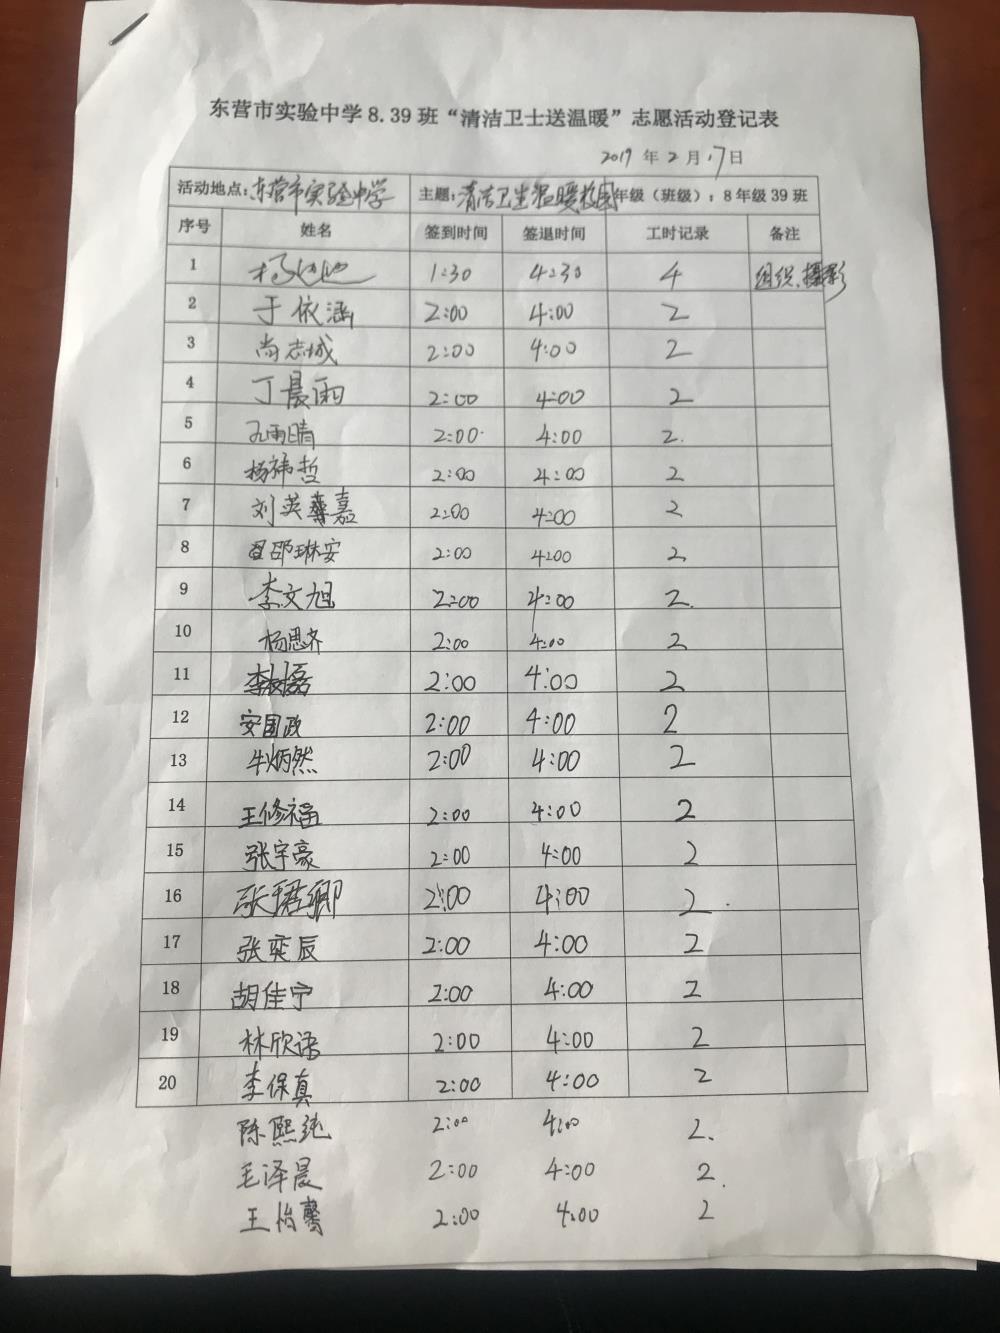 东营市实验中学8.39班“清洁卫士送温暖”志愿活动登记表
2019年2月17日
活动地点：东营市实验中学 主题：清洁卫生温暖校园年级（班级）：8年级39班
序号 姓名 签到时间 签退时间 工时记录 备注
1 杨 1:30 4:30 4 组织、摄影
2 于依涵 2:00 4:00 2
3 尚志城 2:00 4:00 2
4 丁晨雨 2:00 4:00 2
5 孔雨晴 2:00 4:00 2.
6 杨祎哲 2:00 4:00 2
7 刘英嘉 2:00 4:00 2
8 邵琳安 2:00 4:00 2
9 李文旭 2:00 4:00 2.
10 杨思齐 2:00 4:00 2
11 李 2:00 4:00 2
12 安国政 2:00 4:00 2
13 牛炳然 2:00 4:00 2
14 王修福 2:00 4:00 2
15 张宇豪 2:00 4:00 2
16 张珺卿 2:00 4:00 2
17 张奕辰 2:00 4:00 2
18 胡佳宁 2:00 4:00 2
19 林欣语 2:00 4:00 2
20 李保真 2:00 4:00 2
陈熙纯 2:00 4:00 2.
毛泽晨 2:00 4:00 2.
王怡馨 2:00 4:00 2